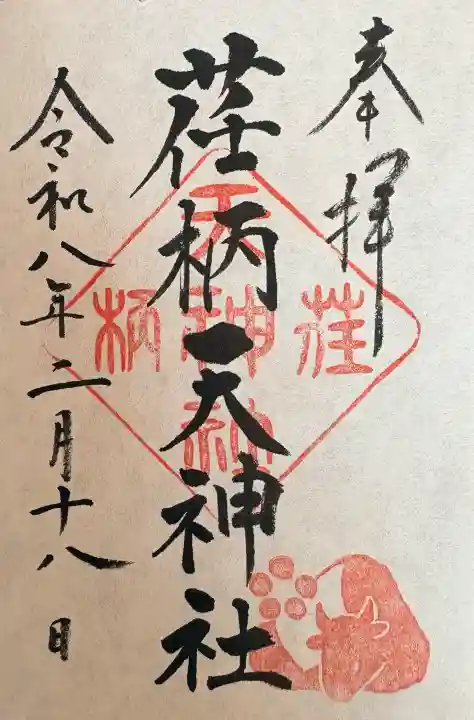 奉拝
荏柄天神社
荏柄天神社
令和八年二月十八日